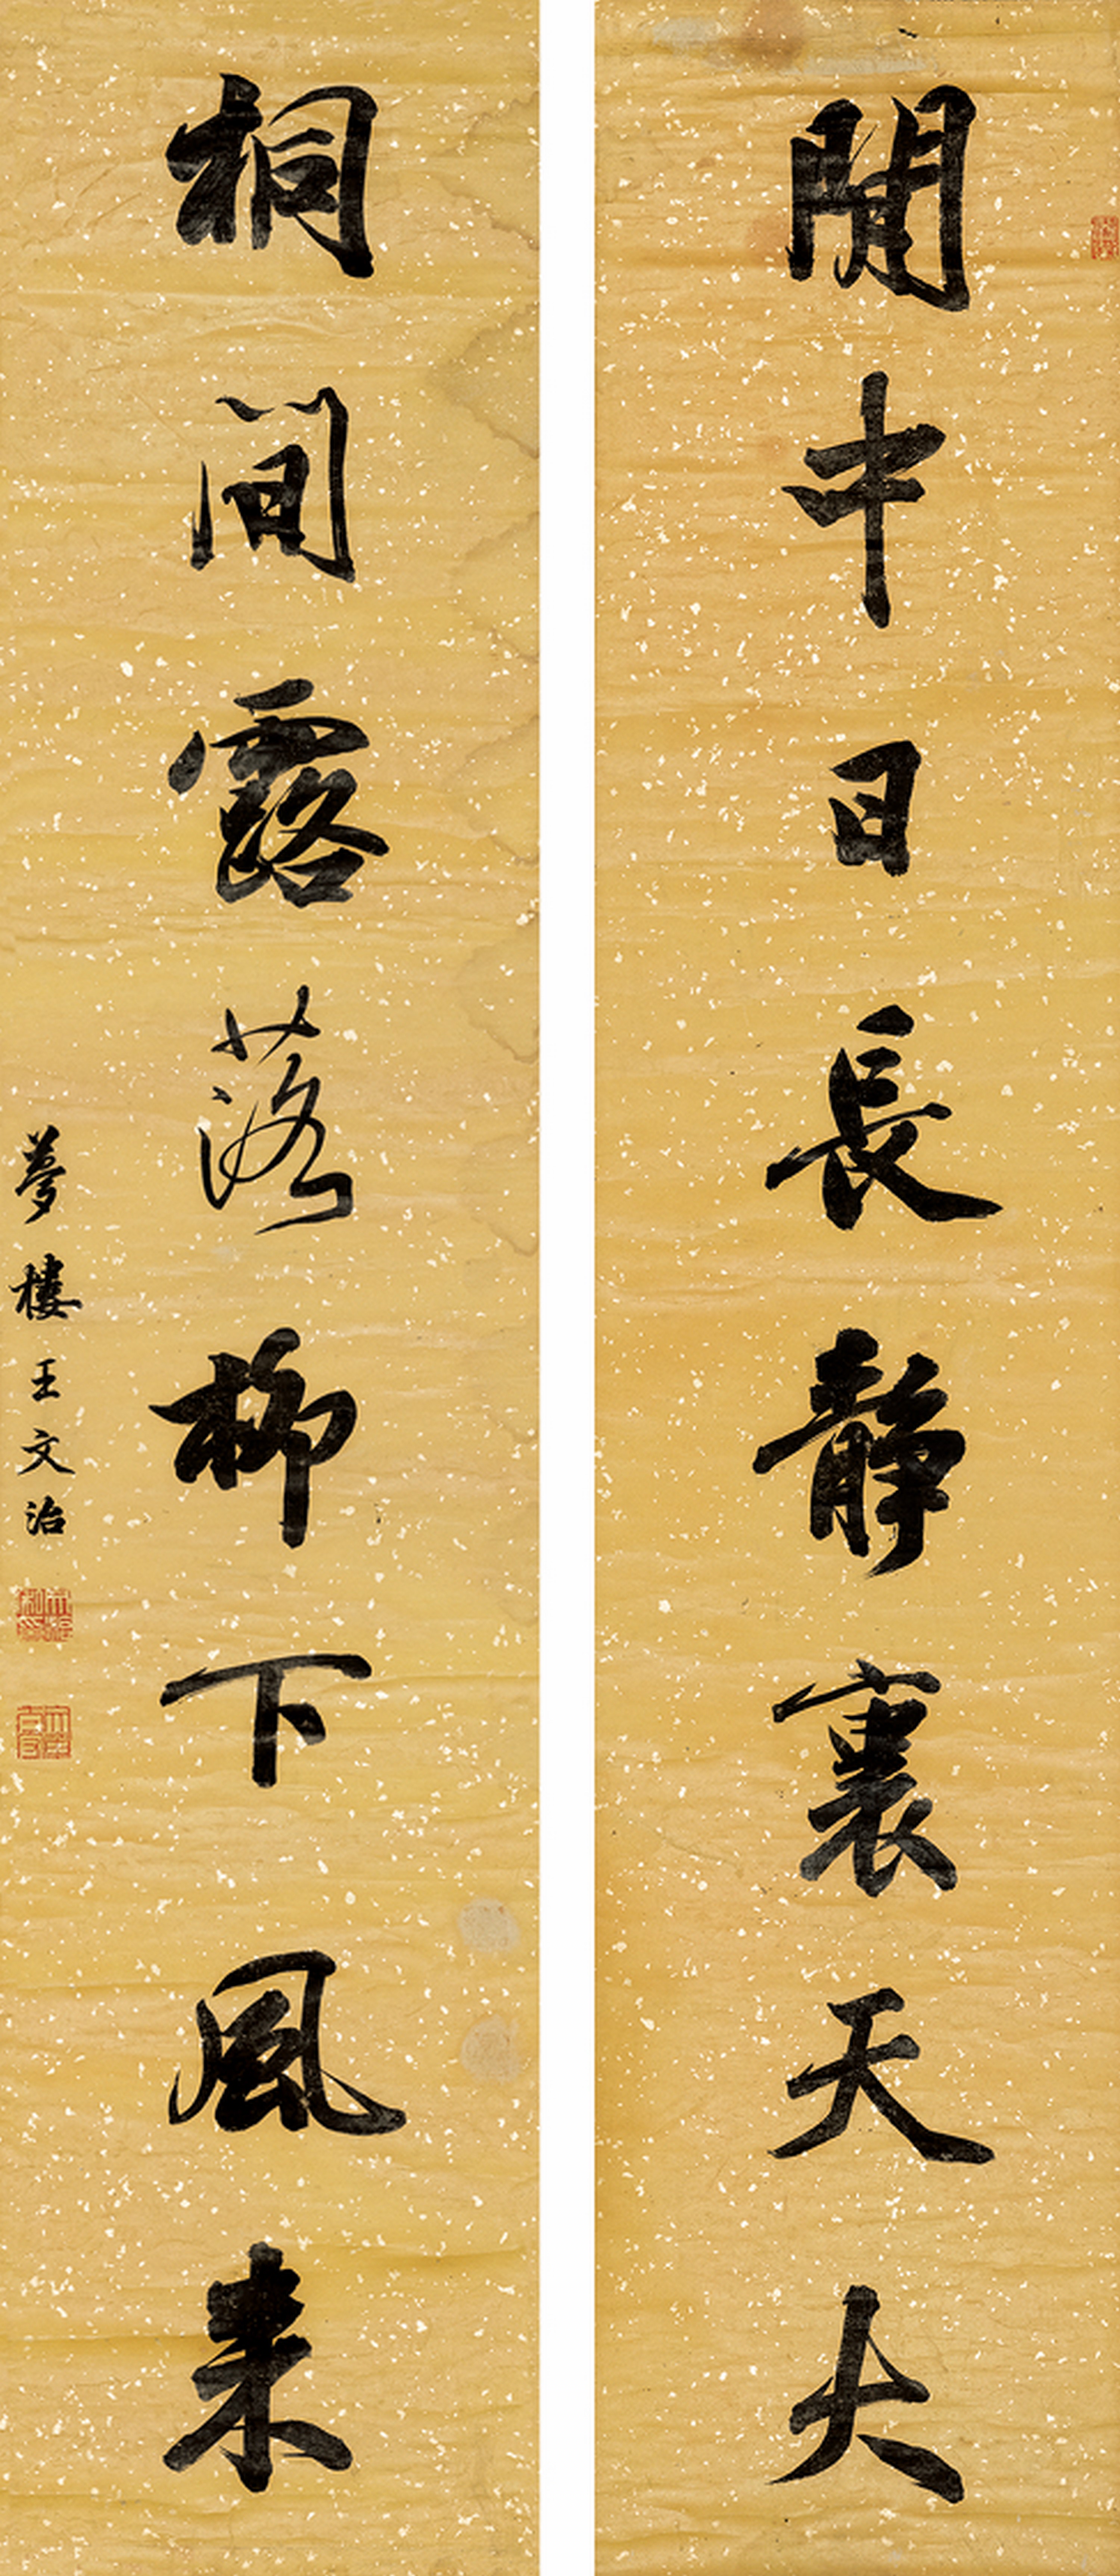 閒中日長靜裏天大
桐間露落柳下風来
夢樓王文治